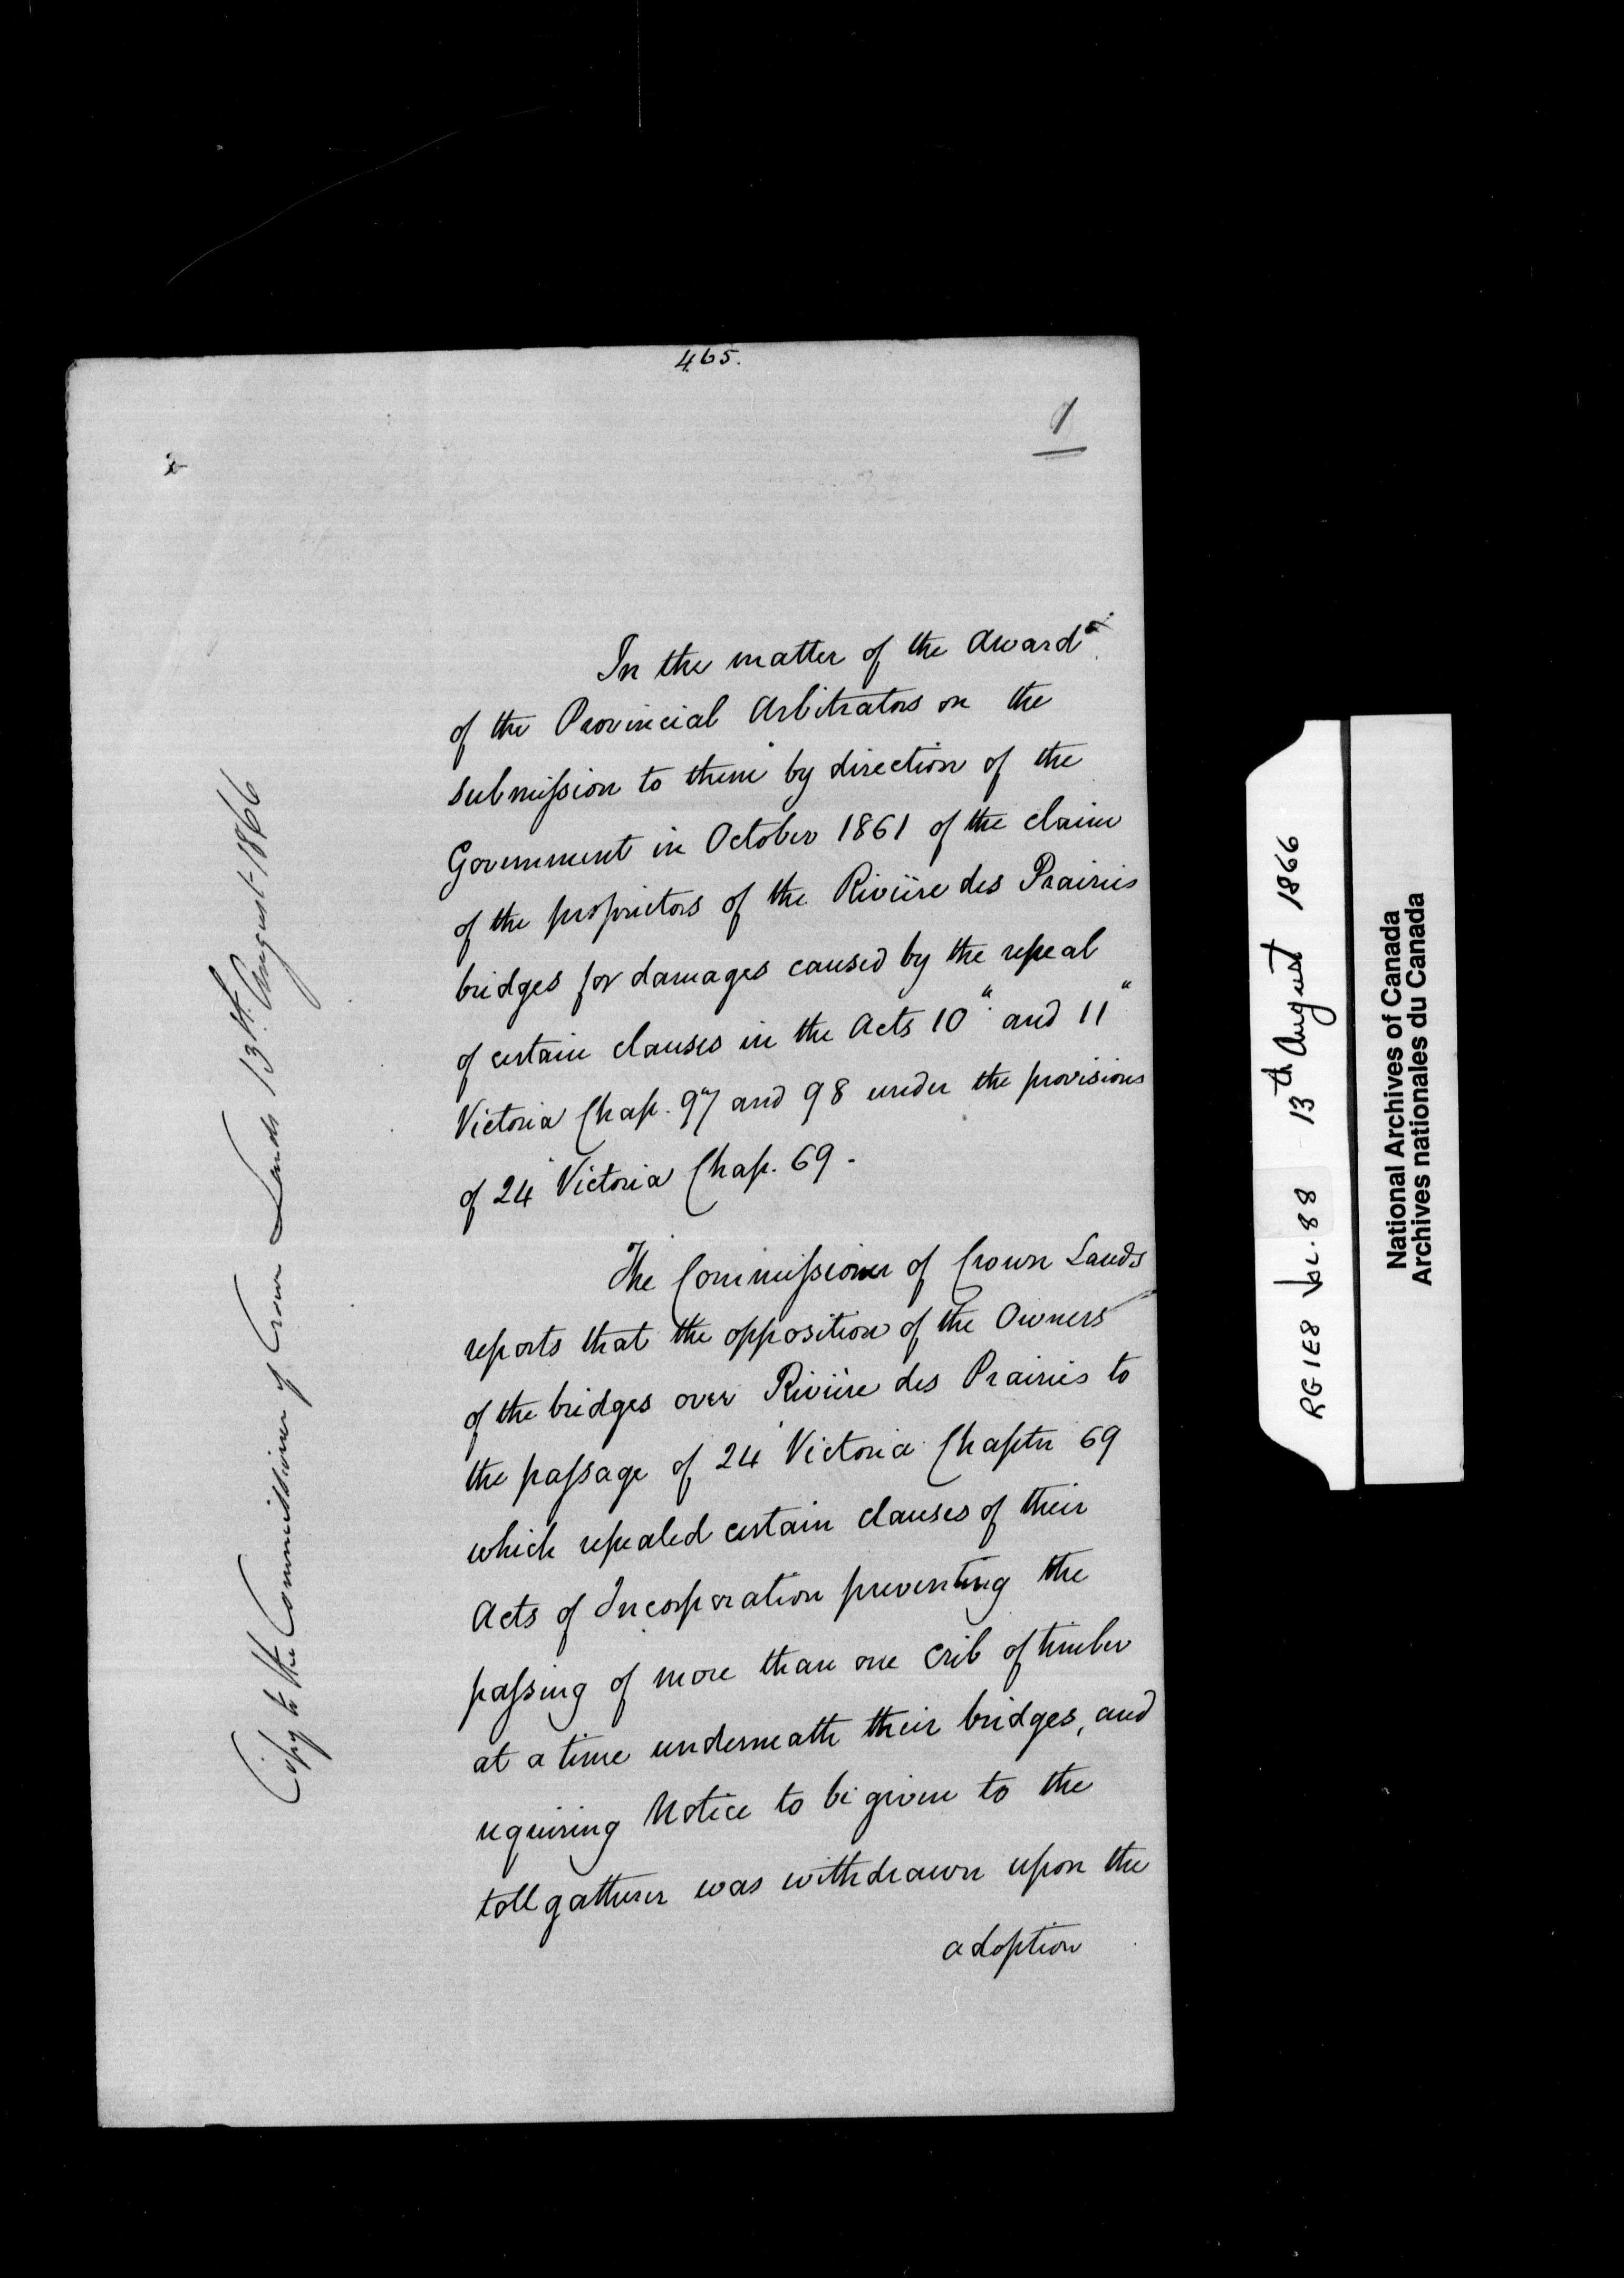 465.
1
In the matter of the award
of the Provincial Arbitrators on the
submission to them by direction of the
Government in October 1861 of the claim
of the proprietors of the Rivière des Prairies
bridges for damages caused by the repeal
of certain clauses in the Acts 10" and 11"
Victoria Chap. 97 and 98 under the provisions
of 24 Victoria Chap. 69.
The Commissioner of Crown Lands
reports that the opposition of the Owners
of the bridges over Rivière des Prairies to
the passage of 24 Victoria Chapter 69
which repealed certain clauses of their
Acts of Incorporation preventing the
passing of more than one crib of timber
at a time underneath their bridges, and
requiring Notice to be given to the
toll gatherer was withdrawn upon the
adoption
Copy to the Commissioner of Crown Lands 13th August 1866
RG 1 E8 Vol. 88 13th August 1866
National Archives of Canada
Archives nationales du Canada